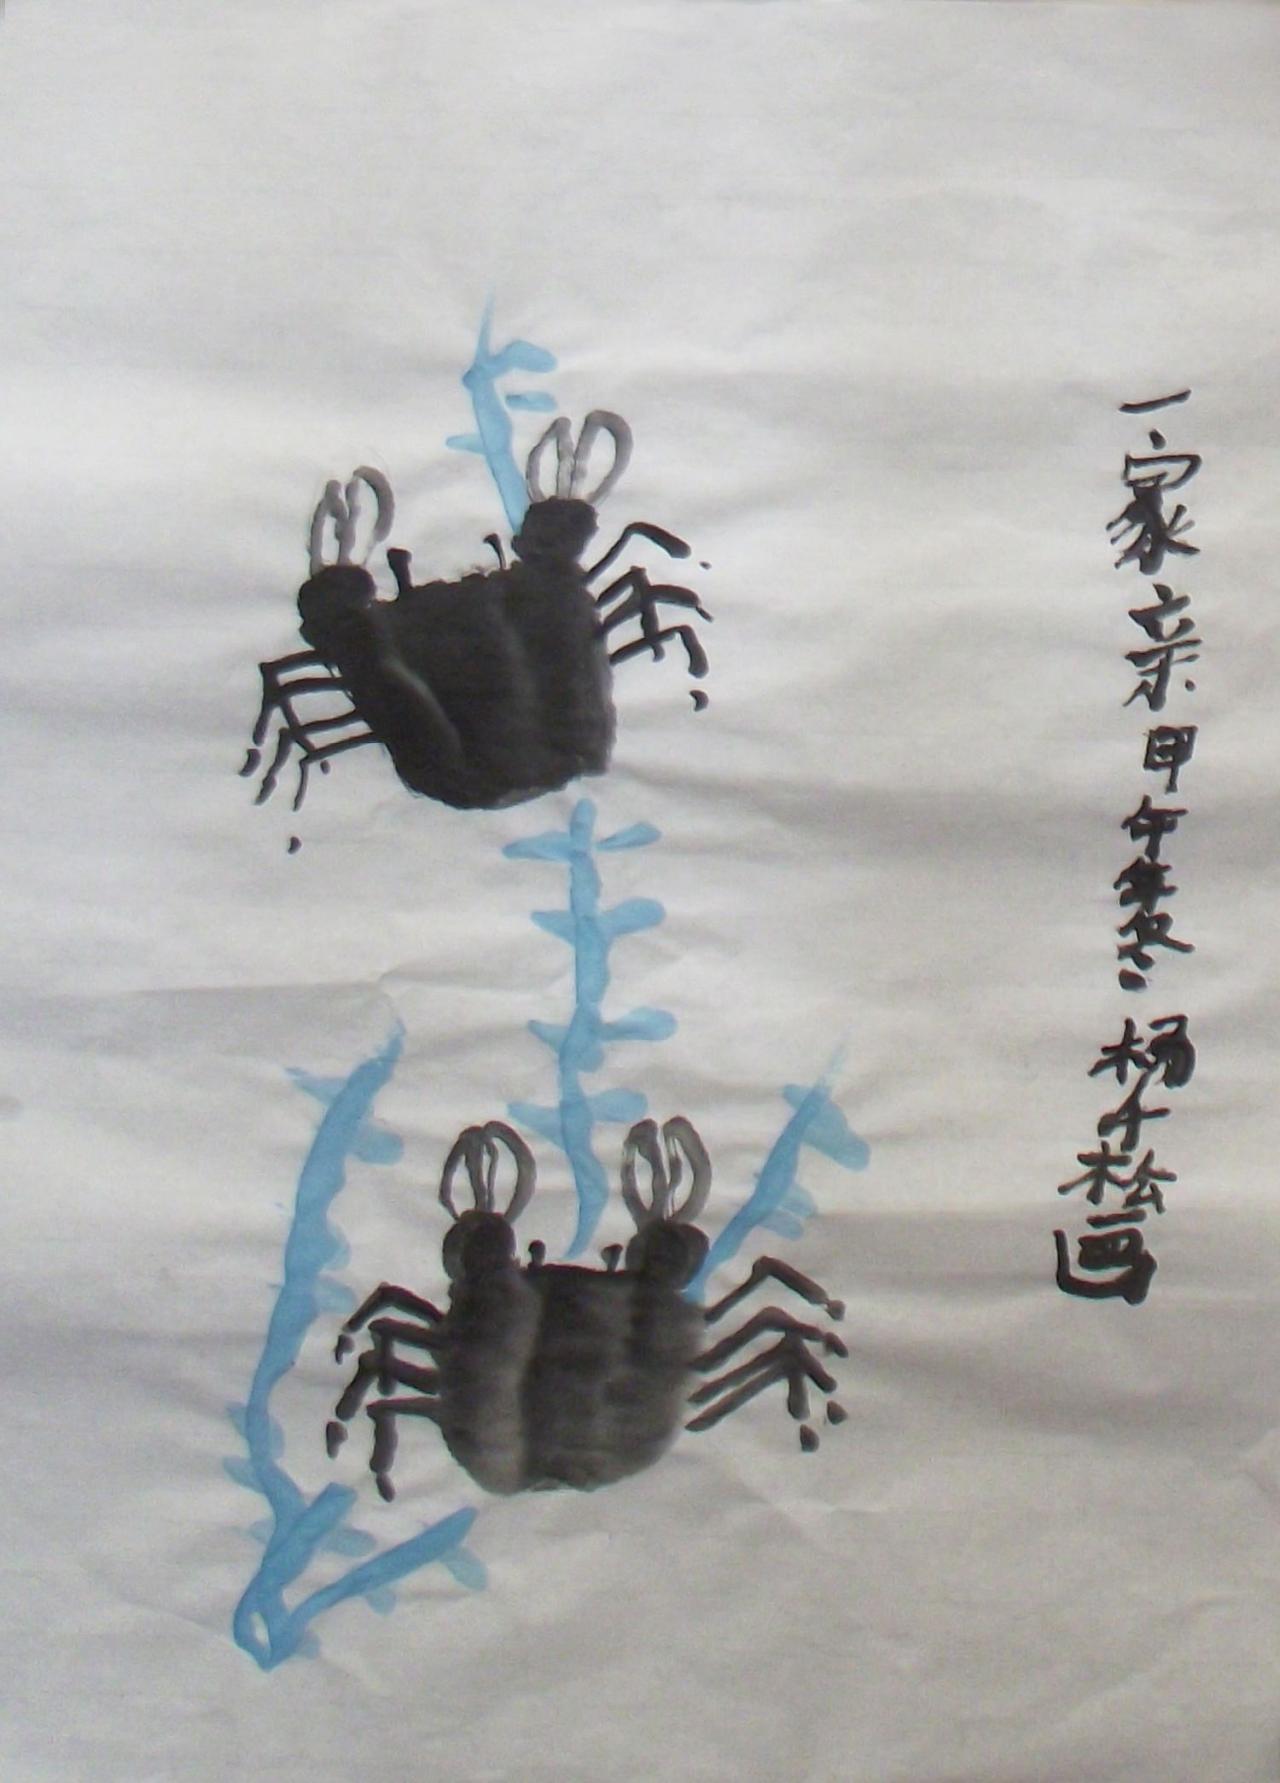 一家亲 甲午年冬 杨千松画